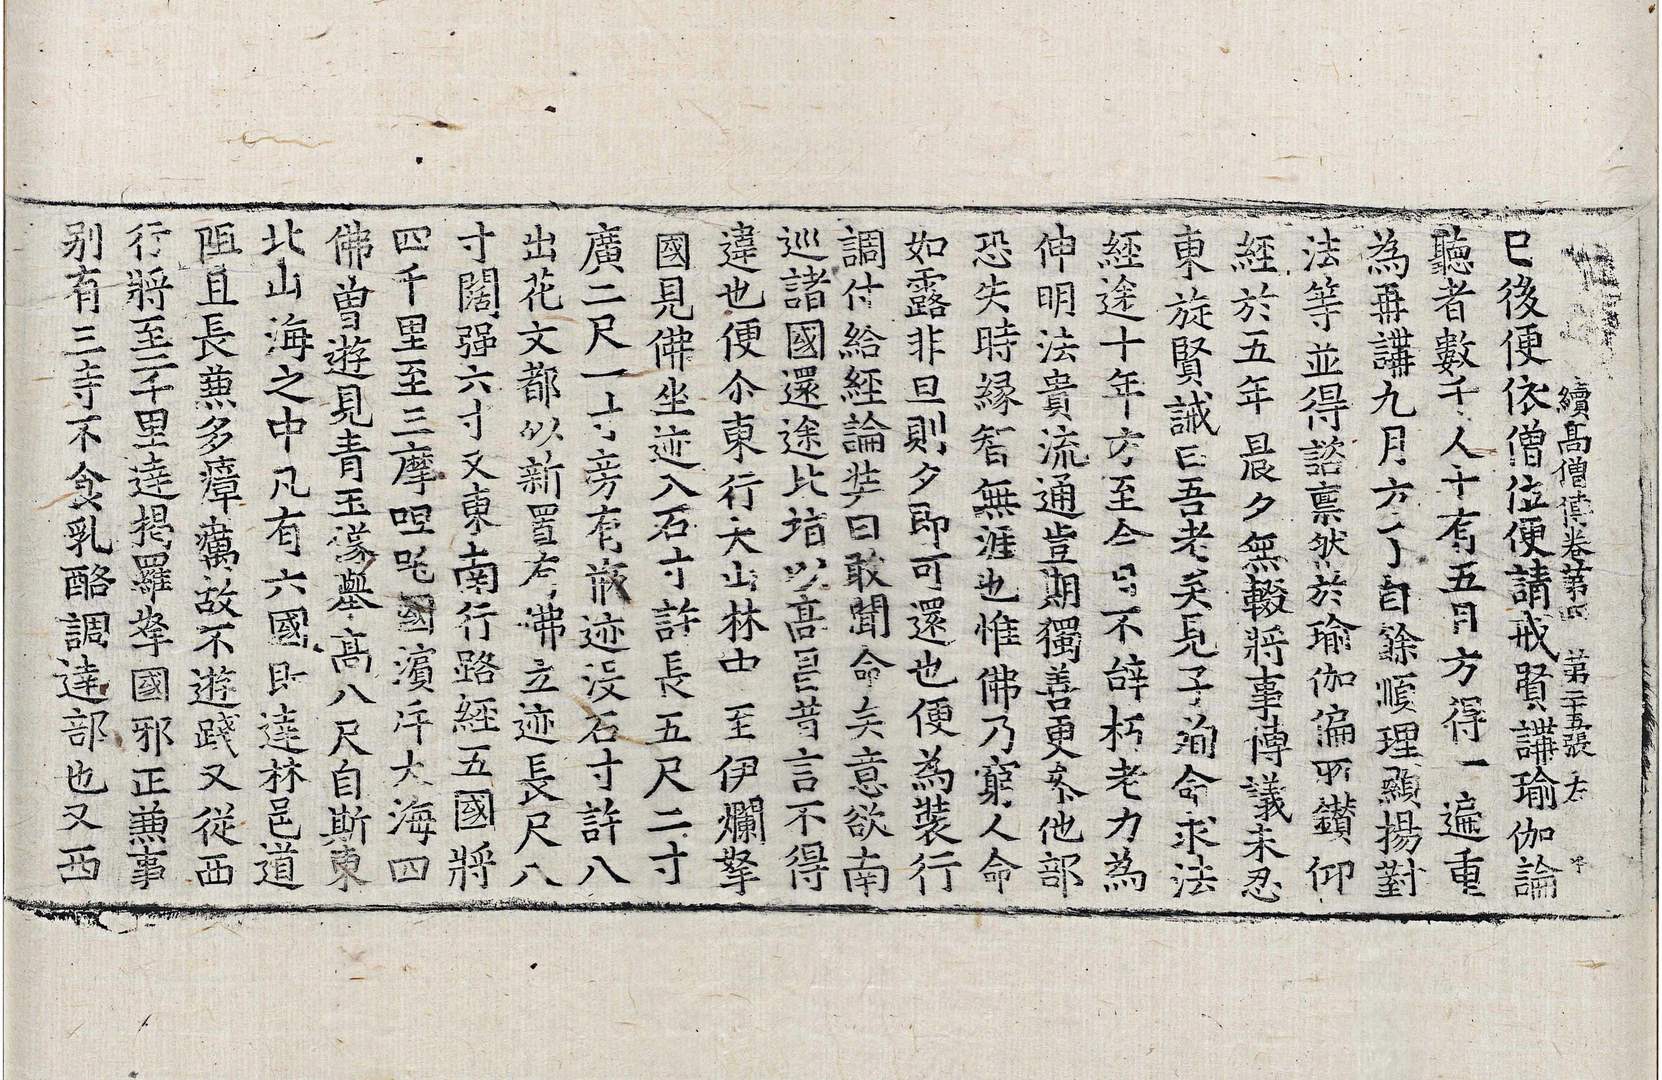 續高僧傳卷第四 第二十五張 左
巳後便依僧位便請戒賢講瑜伽論
聽者數千人十有五月方得一遍重
為再講九月方了自餘順理顯揚對
法等並得諮稟然於瑜伽偏所鑽仰
經於五年晨夕無輟將事博議未忍
東旋賢誡曰吾老矣見子殉命求法
經途十年方至今日不辞朽老力為
伸明法貴流通豈期獨善更參他部
恐失時緣智無涯也惟佛乃窮人命
如露非旦則夕即可還也便為裝行
調付給經論奘曰敢聞命矣意欲南
巡諸國還途北指以高昌昔言不得
違也便尒東行大山林中至伊爛拏
國見佛坐迹入石寸許長五尺二寸
廣二尺一寸旁有瓶迹没石寸許八
出花文都似新置有佛立迹長尺八
寸闊强六寸又東南行路經五國將
四千里至三摩呾吒國濱斥大海四
佛曾遊見青玉像舉高八尺自斯東
北山海之中凡有六國即達林邑道
阻且長兼多瘴癘故不遊踐又從西
行將至二千里達揭羅拏國邪正兼事
别有三寺不食乳酪調達部也又西